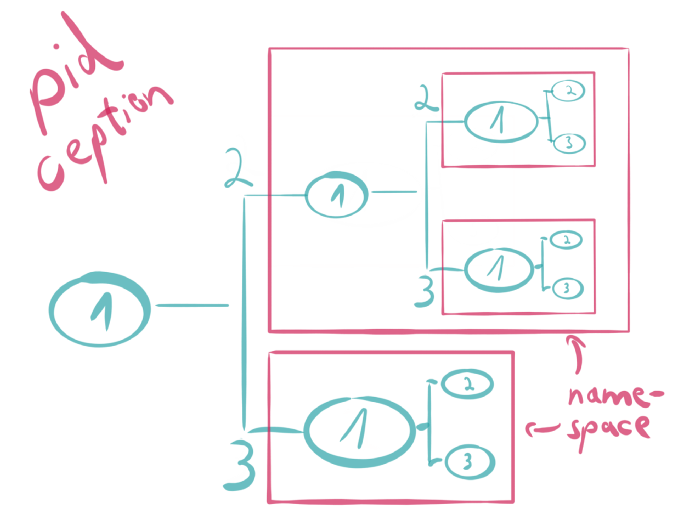 pid
ception
2
1
2
1
2
3
3
1
2
3
1
3
1
2
3
name-
space